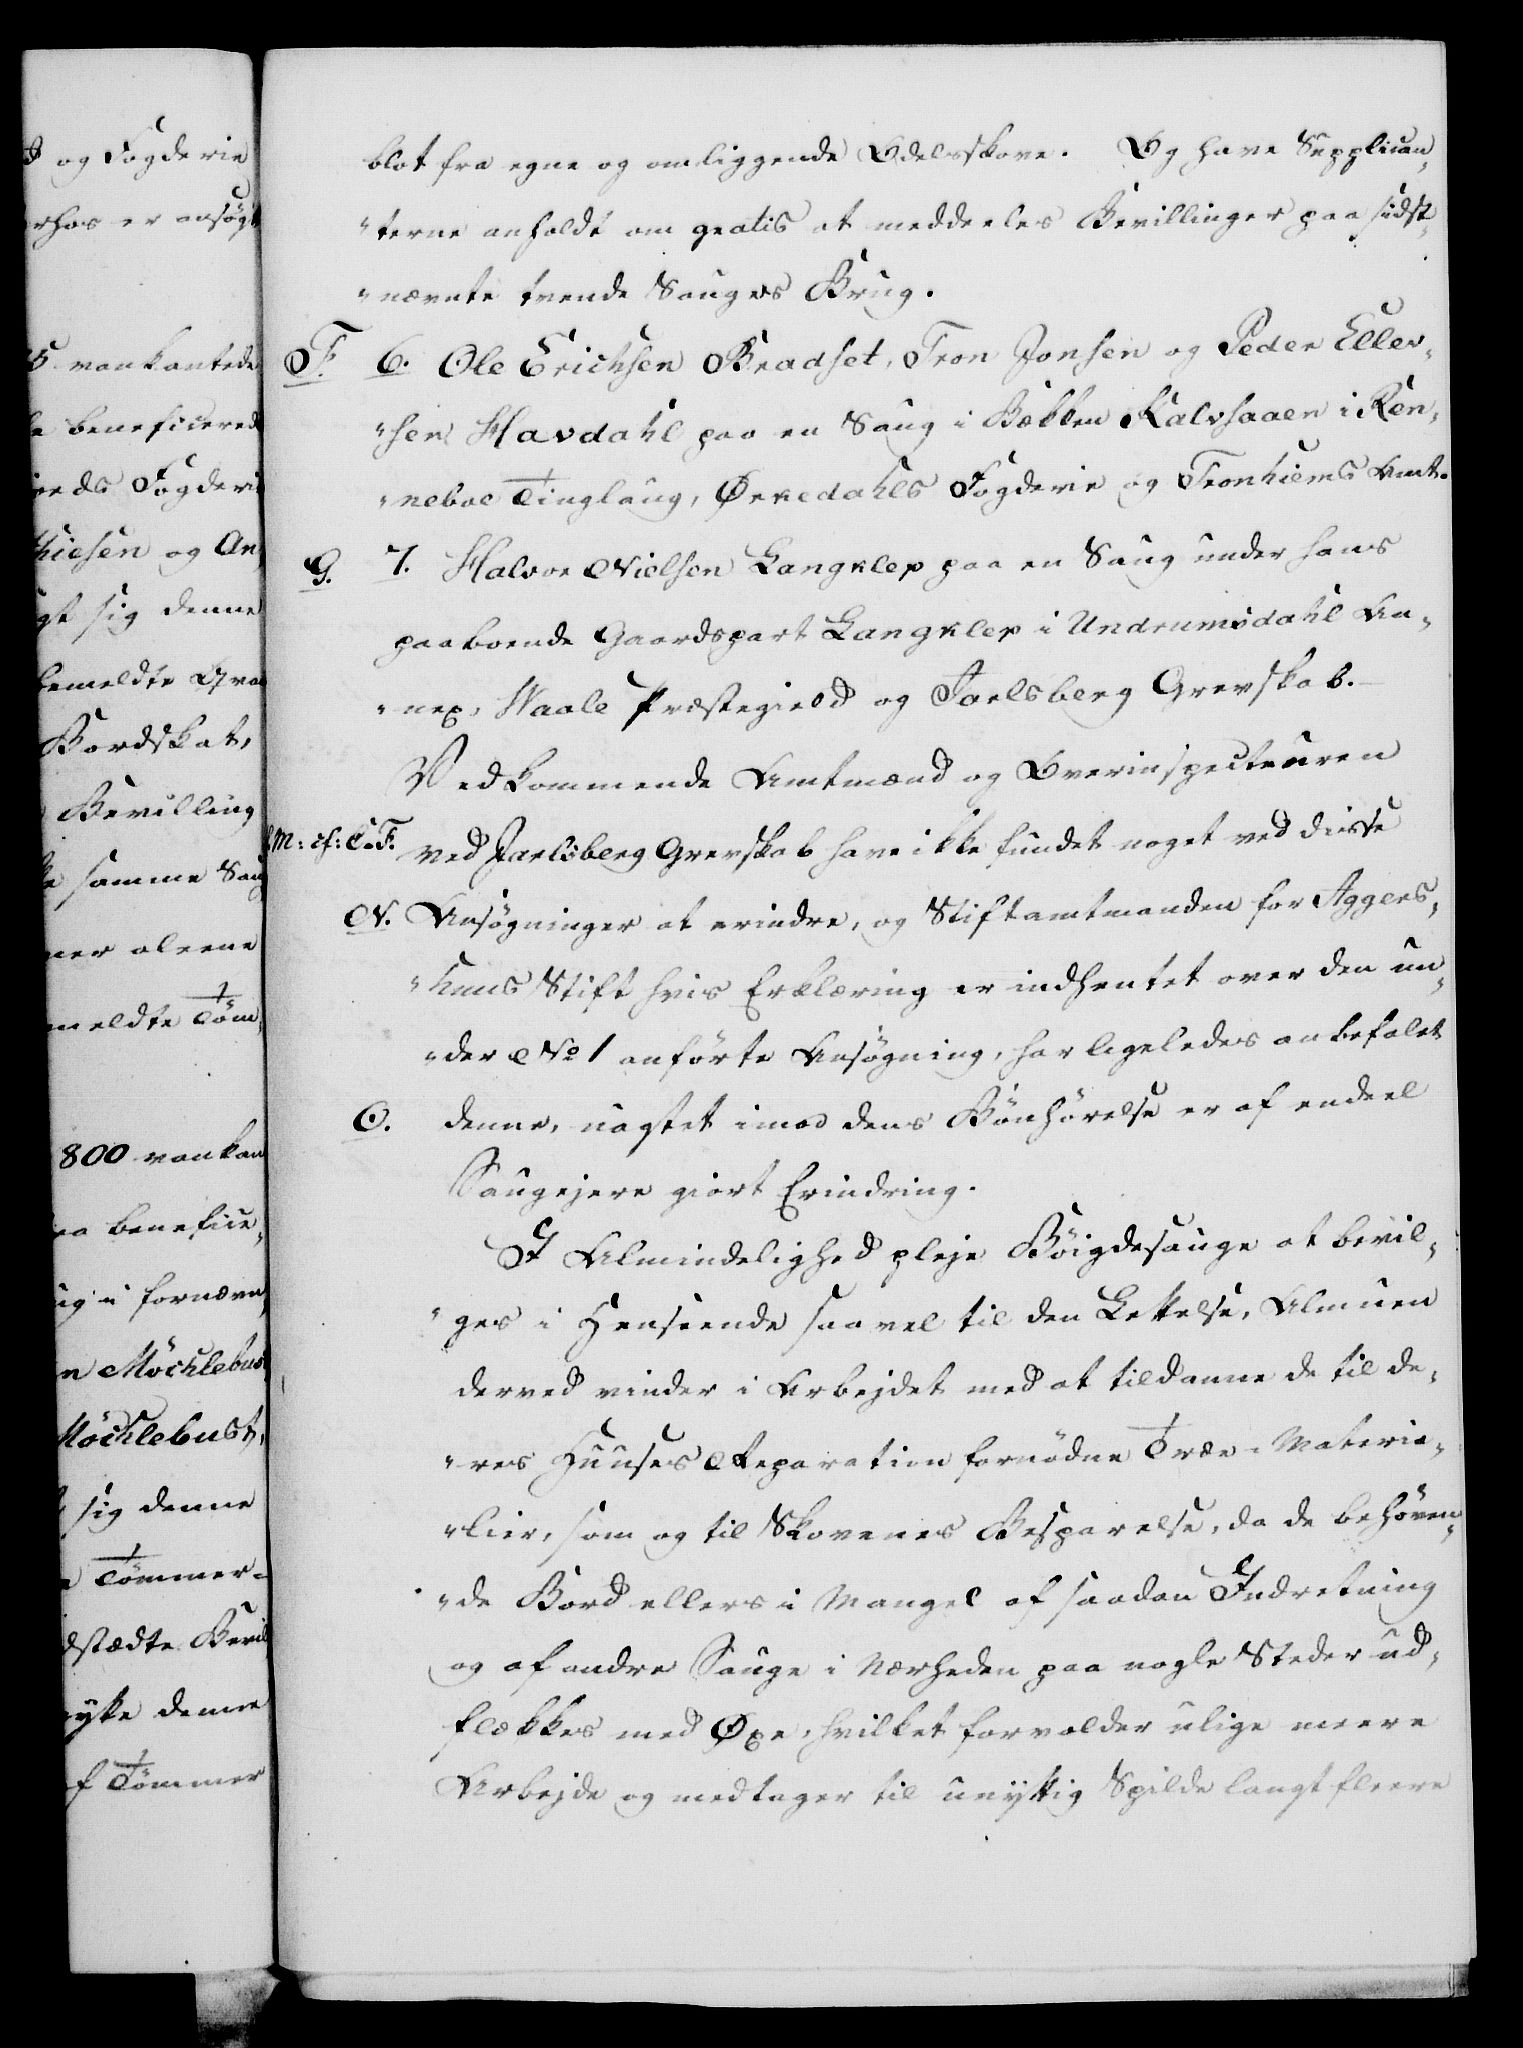 d og Fogderie
rhos er ansøgt
5 vankantede
le beneficerede
reds Fogderie
thiesen og An¬
gt sig denne
bemeldte Qva
Bordskat,
Bevilling
ke samme Saug
ner aleene
meldte Töm¬
800 vankan
aa benefice¬
ug i fornævn¬
n Möchlebust
Möchlebust,
t sig denne
e Tömmer-
dstædte Bevil
nytte denne
f Tömmer
blot fra egne og omliggende Odelsskove. Og have Supplican¬
"terne anholdt om gratis at meddeeles Bevillinger paa sidst¬
"nævnte tvende Sauges Brug.
F. 6. Ole Erichsen Bradset, Tron Jonsen og Peder Ellev¬
"sen Havdahl paa en Saug i Bækken Kalvsaaen i Ren¬
"neboe Tinglaug, Ørkedahls Fogderie og Tronhiems Amt.
G. 7. Halvor Nielsen Langklep paa en Saug under hans
paaboende Gaardspart Langklep i Undrumsdahl An¬
"nex, Waale Præstegield og Jarlsberg Grevskab.
Vedkommende Amtmænd og Overinspecteuren
M: cf: C.F. ved Jarlsberg Grevskab have ikke fundet noget ved disse
N. Ansøgninger at erindre, og Stiftamtmanden for Aggers¬
"huus Stift hvis Erklæring er indhentet over den un¬
"der No 1 anförte Ansøgning, har ligeledes anbefalet
O. denne, uagtet imod dens Bönhörelse er af endeel
Saugejere giort Erindring.
I Almindelighed pleje Böigdesauge at bevil¬
"ges i Henseende saavel til den Lettelse, Almuen
derved vinder i Arbejdet med at tildanne de til de¬
"res Huuses Reparation fornödne Træ-Materia¬
"lier, som og til Skovenes Besparelse, da de behöven¬
"de Bord ellers i Mangel af saadan Indretning
og af andre Sauge i Nærheden paa nogle Steder ud¬
flækkes med Øxe, hvilket forvolder ulige meere
Arbejde og medtager til unyttig Spilde langt fleere